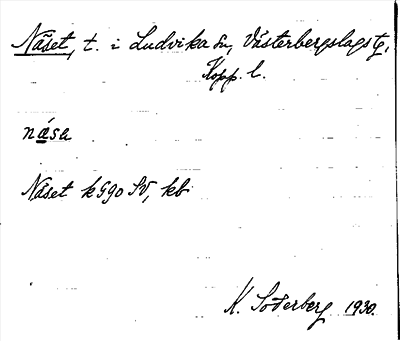 Näset, t. i Ludvika sn, Västerbergslags tg,
Kopp. l.
nása
Näset k G90 SV, kb
K. Söderberg 1930.